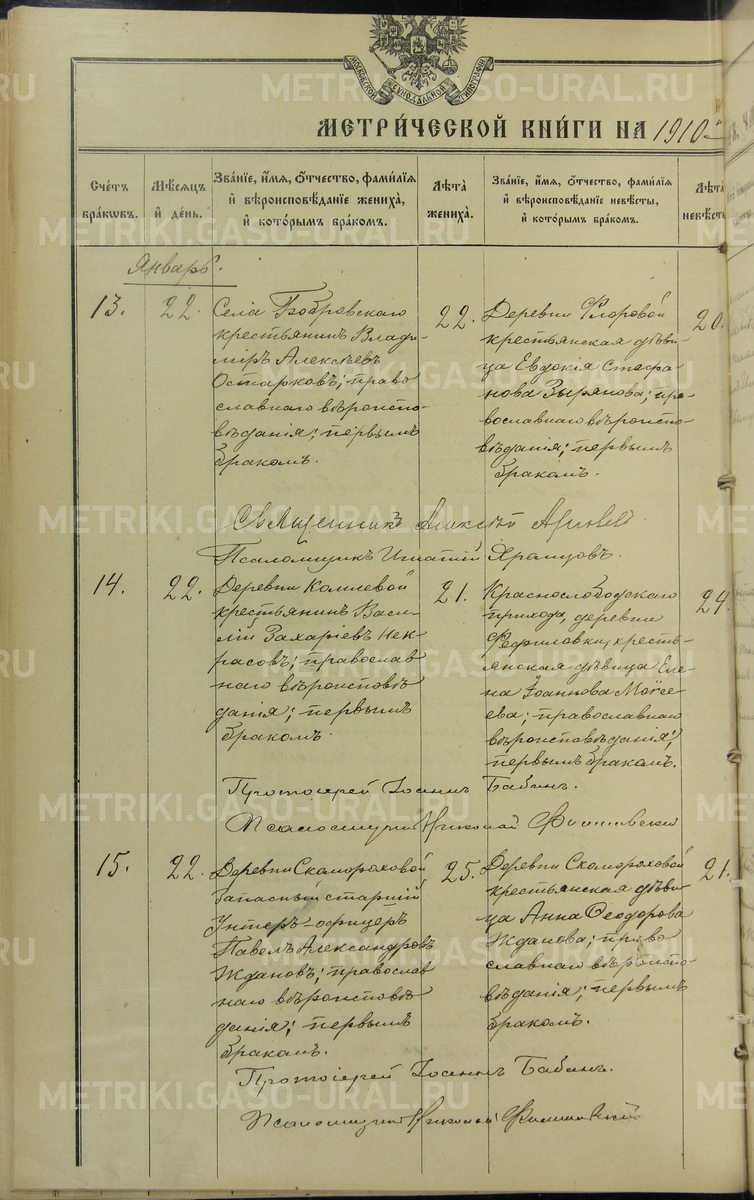 МОСКОВСКОЙ СУНОДАЛЬНОЙ ТИПОГРАФІИ
МЕТРИЧЕСКОЙ КНИГИ НА 1910
Счетъ браковъ.
Мѣсяцъ и день.
Званіе, имя, отчество, фамилія
и вѣроисповѣданіе жениха,
и которымъ бракомъ.
Лѣта жениха.
Званіе, имя, отчество, фамилія
и вѣроисповѣданіе невѣсты,
и которымъ бракомъ.
Лѣта
невѣсты
Январь.
13.
22.
Села Бобровскаго
крестьянинъ Влади-
міръ Алексѣевъ
Остарковъ; право
славнаго вѣроиспо-
вѣданія; первымъ
бракомъ.
22.
Деревни Флоровой
крестьянская дѣви-
ца Евдокія Стефа-
нова Зырянова; пра-
вославнаго вѣроиспо-
вѣданія; первымъ
бракомъ.
20.
Священникъ Алексѣй
Псаломщикъ Игнатій Храмцовъ.
14.
22.
Деревни
крестьянинъ Васи-
лій Захаріевъ Нек-
расовъ; православ
наго вѣроисповѣ
данія; первымъ
бракомъ.
21.
Краснослободскаго
прихода, деревни
крестья-
янская дѣвица Еле-
на Іоаннова Моѵсе-
ева; православнаго
вѣроисповѣданія;
первымъ бракомъ.
24.
Протоіерей Іоаннъ Бабинъ.
Псаломщикъ Николай
15.
22.
Деревни Скомороховой
запасный старшій
Унтеръ-офицеръ
Павелъ Александровъ
Ждановъ; православ
наго вѣроисповѣ
данія; первымъ
бракомъ.
25.
Деревни Скомороховой
крестьянская дѣви-
ца Анна Ѳеодорова
Жданова; право
славнаго вѣроиспо-
вѣданія; первымъ
бракомъ.
21.
Протоіерей Іоаннъ Бабинъ.
Псаломщикъ Николай
METRIKI.GASO-URAL.RU